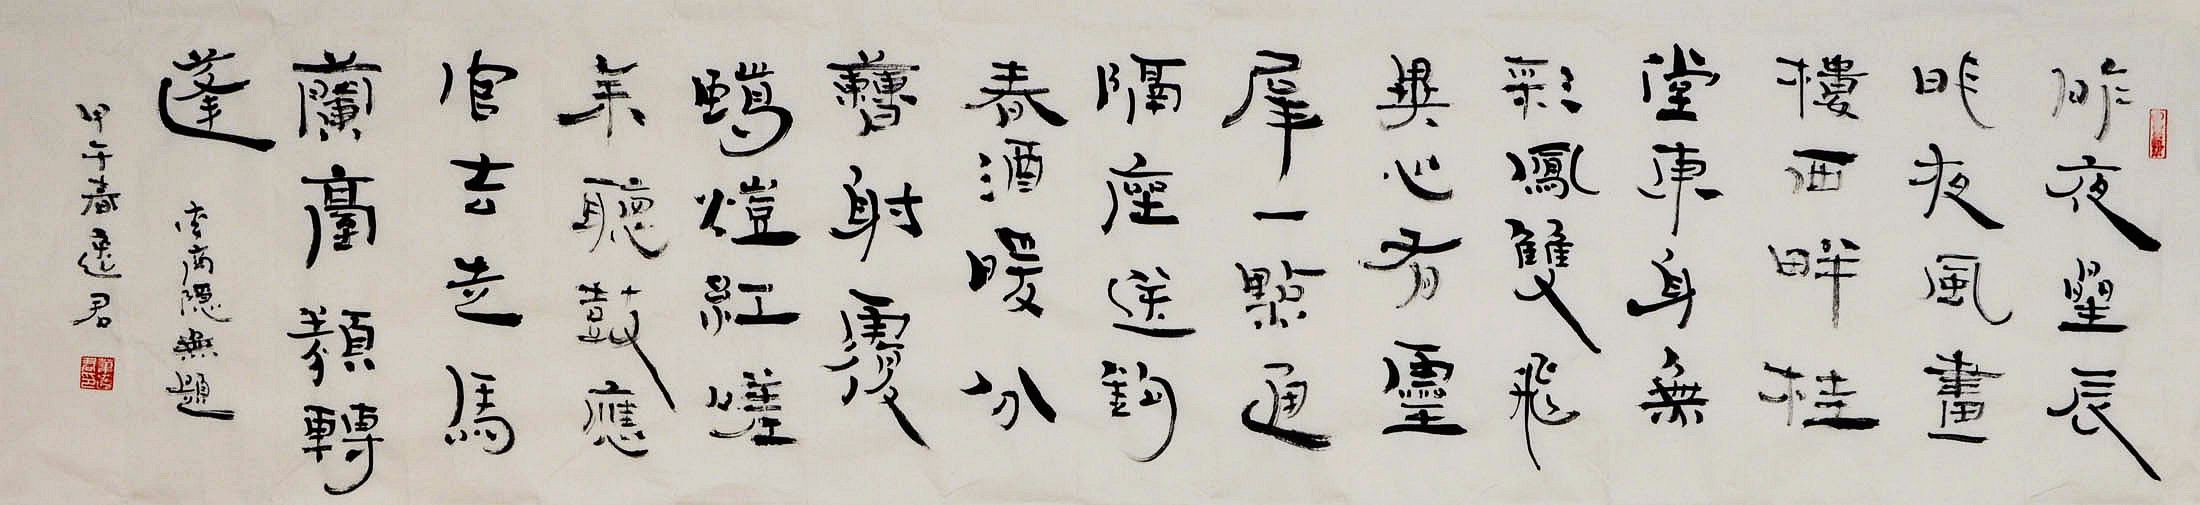 昨夜星辰
昨夜風畫
樓西畔桂
堂東身無
彩鳳雙飛
翼心有靈
犀一點通
隔座送鉤
春酒暖分
曹射覆
蠟燈紅嗟
余聽鼓應
官去走馬
蘭臺類轉
蓬
李商隱無題
甲午春 君